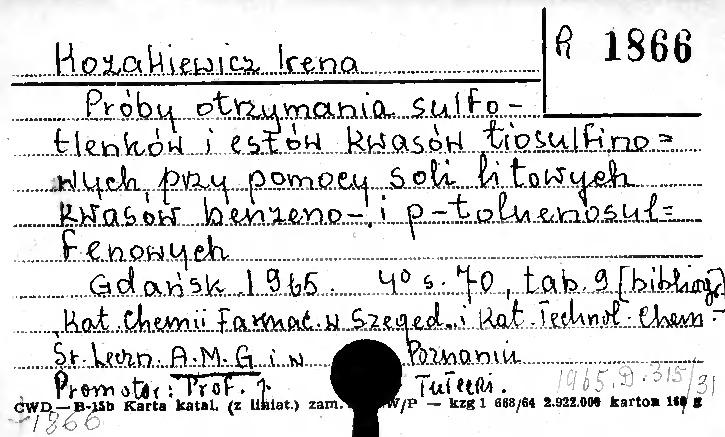 Kozakiewicz Irena
R 1866
Próby otrzymania sulfo-
tlenków i estów kwasów tiosulfino=
wych przy pomocy soli litowych
kwasów benzeno-, i p-toluenosul=
fenowych
Gdańsk 1965. 4° s. 70, tab. 9 [bibliogr]
Kat. Chemii Farmac. w Szeged. i Kat. Technol. Chem.
Śr. Leczn. A.M.G i w Poznaniu
Promotor: Prof. J.
1965.D.315/31
CWD — B-15b Karta katal. (z liniat.) zam. W/P — kzg 1 668/64 2.922.000 karton 160 g
1866